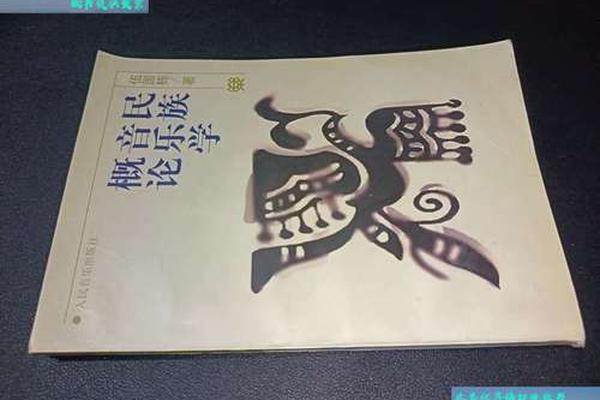 伍国栋/著
民族
音乐学
概论
人民音乐出版社